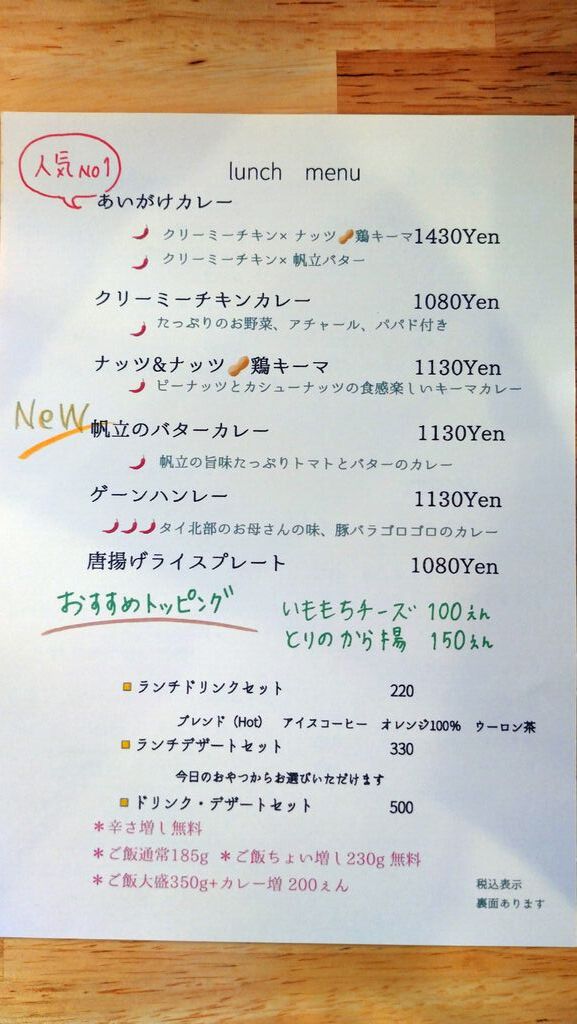 人気No1
lunch menu
あいがけカレー
クリーミーチキン× ナッツ🥜鶏キーマ1430Yen
クリーミーチキン× 帆立バター
クリーミーチキンカレー 1080Yen
たっぷりのお野菜、アチャール、パパド付き
ナッツ&ナッツ🥜鶏キーマ 1130Yen
ピーナッツとカシューナッツの食感楽しいキーマカレー
NeW
帆立のバターカレー 1130Yen
帆立の旨味たっぷりトマトとバターのカレー
ゲーンハンレー 1130Yen
タイ北部のお母さんの味、豚バラゴロゴロのカレー
唐揚げライスプレート 1080Yen
おすすめトッピング
いももちチーズ 100えん
とりのから揚 150えん
ランチドリンクセット 220
ブレンド（Hot） アイスコーヒー オレンジ100% ウーロン茶
ランチデザートセット 330
今日のおやつからお選びいただけます
ドリンク・デザートセット 500
＊辛さ増し無料
＊ご飯通常185g ＊ご飯ちょい増し230g 無料
＊ご飯大盛350g+カレー増 200ぇん
税込表示
裏面あります